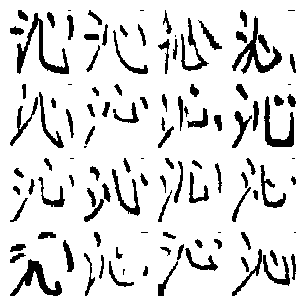 沁沁沁沁
沁沁沁沁
沁沁沁沁
沁沁沁沁